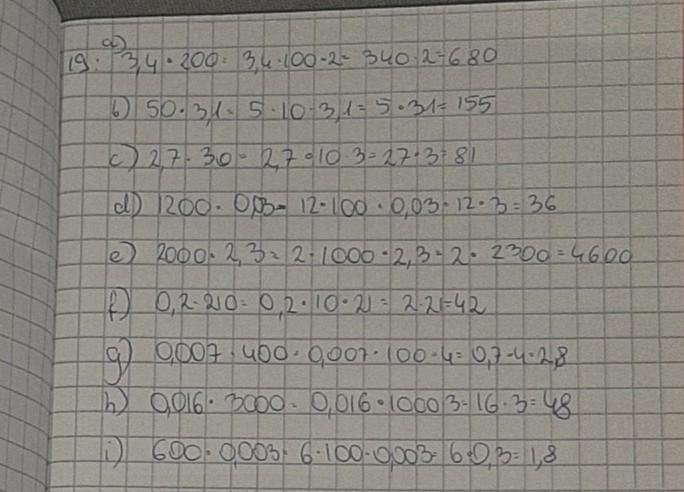 19. a) 3,4 · 200 = 3,4 · 100 · 2 = 340 · 2 = 680
b) 50 · 3,1 = 5 · 10 · 3,1 = 5 · 31 = 155
c) 2,7 · 30 = 2,7 · 10 · 3 = 27 · 3 = 81
d) 1200 · 0,03 = 12 · 100 · 0,03 = 12 · 3 = 36
e) 2000 · 2,3 = 2 · 1000 · 2,3 = 2 · 2300 = 4600
f) 0,2 · 210 = 0,2 · 10 · 21 = 2 · 21 = 42
g) 0,007 · 400 = 0,007 · 100 · 4 = 0,7 · 4 = 2,8
h) 0,016 · 3000 = 0,016 · 1000 3 = 16 · 3 = 48
i) 600 · 0,003 = 6 · 100 · 0,003 = 6 · 0,3 = 1,8